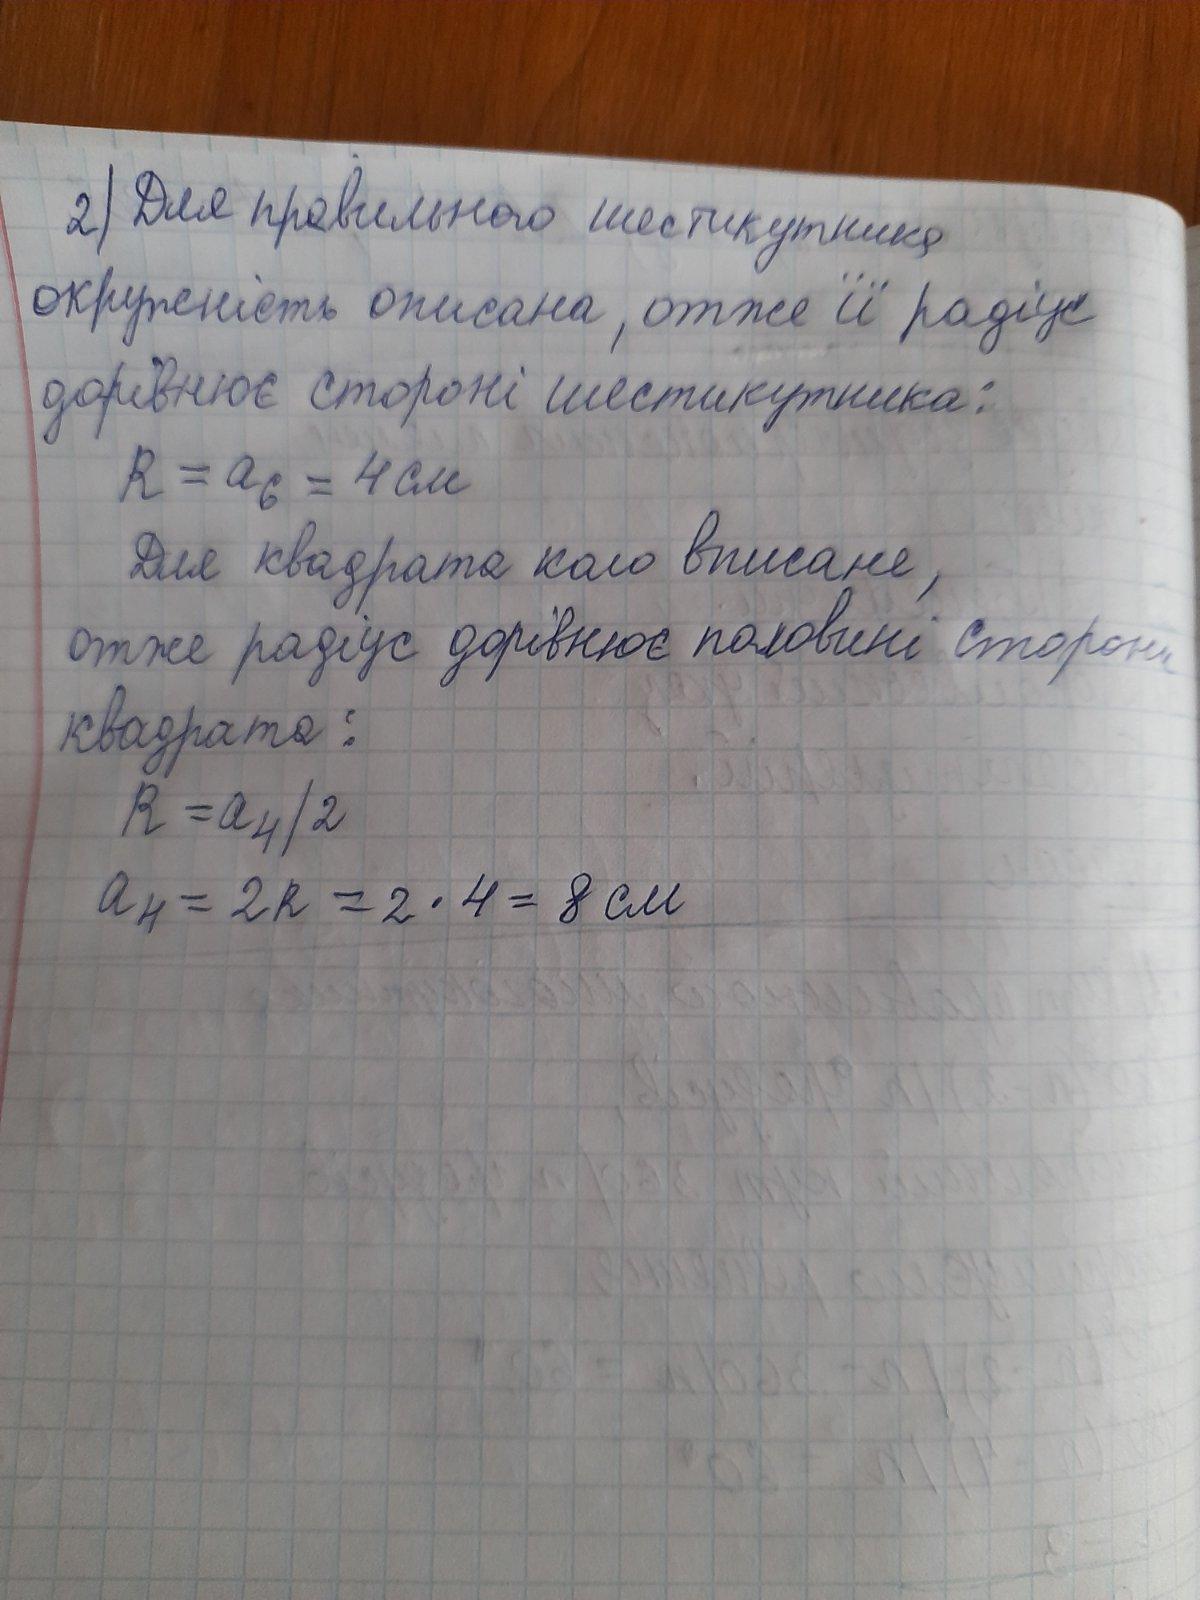 2) Для правильного шестикутника
окружність описана, отже її радіус
дорівнює стороні шестикутника:
R = a₆ = 4 см
Для квадрата коло вписане,
отже радіус дорівнює половині сторони
квадрата:
R = a₄/2
a₄ = 2R = 2 · 4 = 8 см